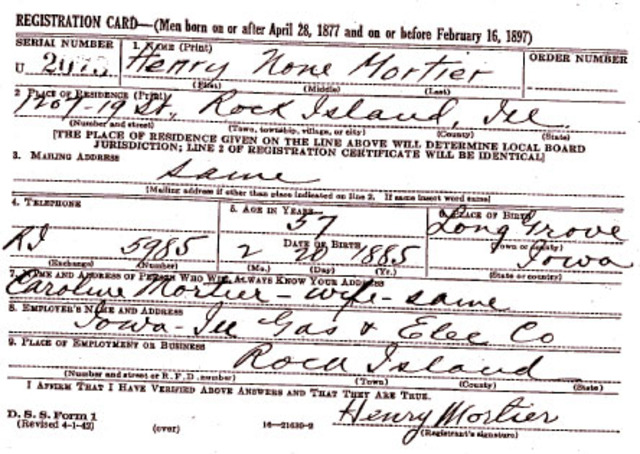 REGISTRATION CARD—(Men born on or after April 28, 1877 and on or before February 16, 1897)
SERIAL NUMBER 1. NAME (Print) ORDER NUMBER
U Henry None Mortier
(First) (Middle) (Last)
2. PLACE OF RESIDENCE (Print)
19 St, Rock Island, Ill.
(Number and street) (Town, township, village, or city) (County) (State)
[THE PLACE OF RESIDENCE GIVEN ON THE LINE ABOVE WILL DETERMINE LOCAL BOARD
JURISDICTION; LINE 2 OF REGISTRATION CERTIFICATE WILL BE IDENTICAL]
3. MAILING ADDRESS
same
[Mailing address if other than place indicated on line 2. If same insert word same]
4. TELEPHONE 5. AGE IN YEARS 6. PLACE OF BIRTH
57 Long Grove
DATE OF BIRTH (Town or county)
RI 5985 2 20 1885 Iowa
(Exchange) (Number) (Mo.) (Day) (Yr.) (State or country)
7. NAME AND ADDRESS OF PERSON WHO WILL ALWAYS KNOW YOUR ADDRESS
Caroline Mortier - wife - same
8. EMPLOYER'S NAME AND ADDRESS
Iowa-Ill Gas & Elec Co
9. PLACE OF EMPLOYMENT OR BUSINESS
Rock Island
(Number and street or R. F. D. number) (Town) (County) (State)
I AFFIRM THAT I HAVE VERIFIED ABOVE ANSWERS AND THAT THEY ARE TRUE.
Henry Mortier
D. S. S. Form 1
(Revised 4-1-42) (over) 16—21630-2 (Registrant's signature)